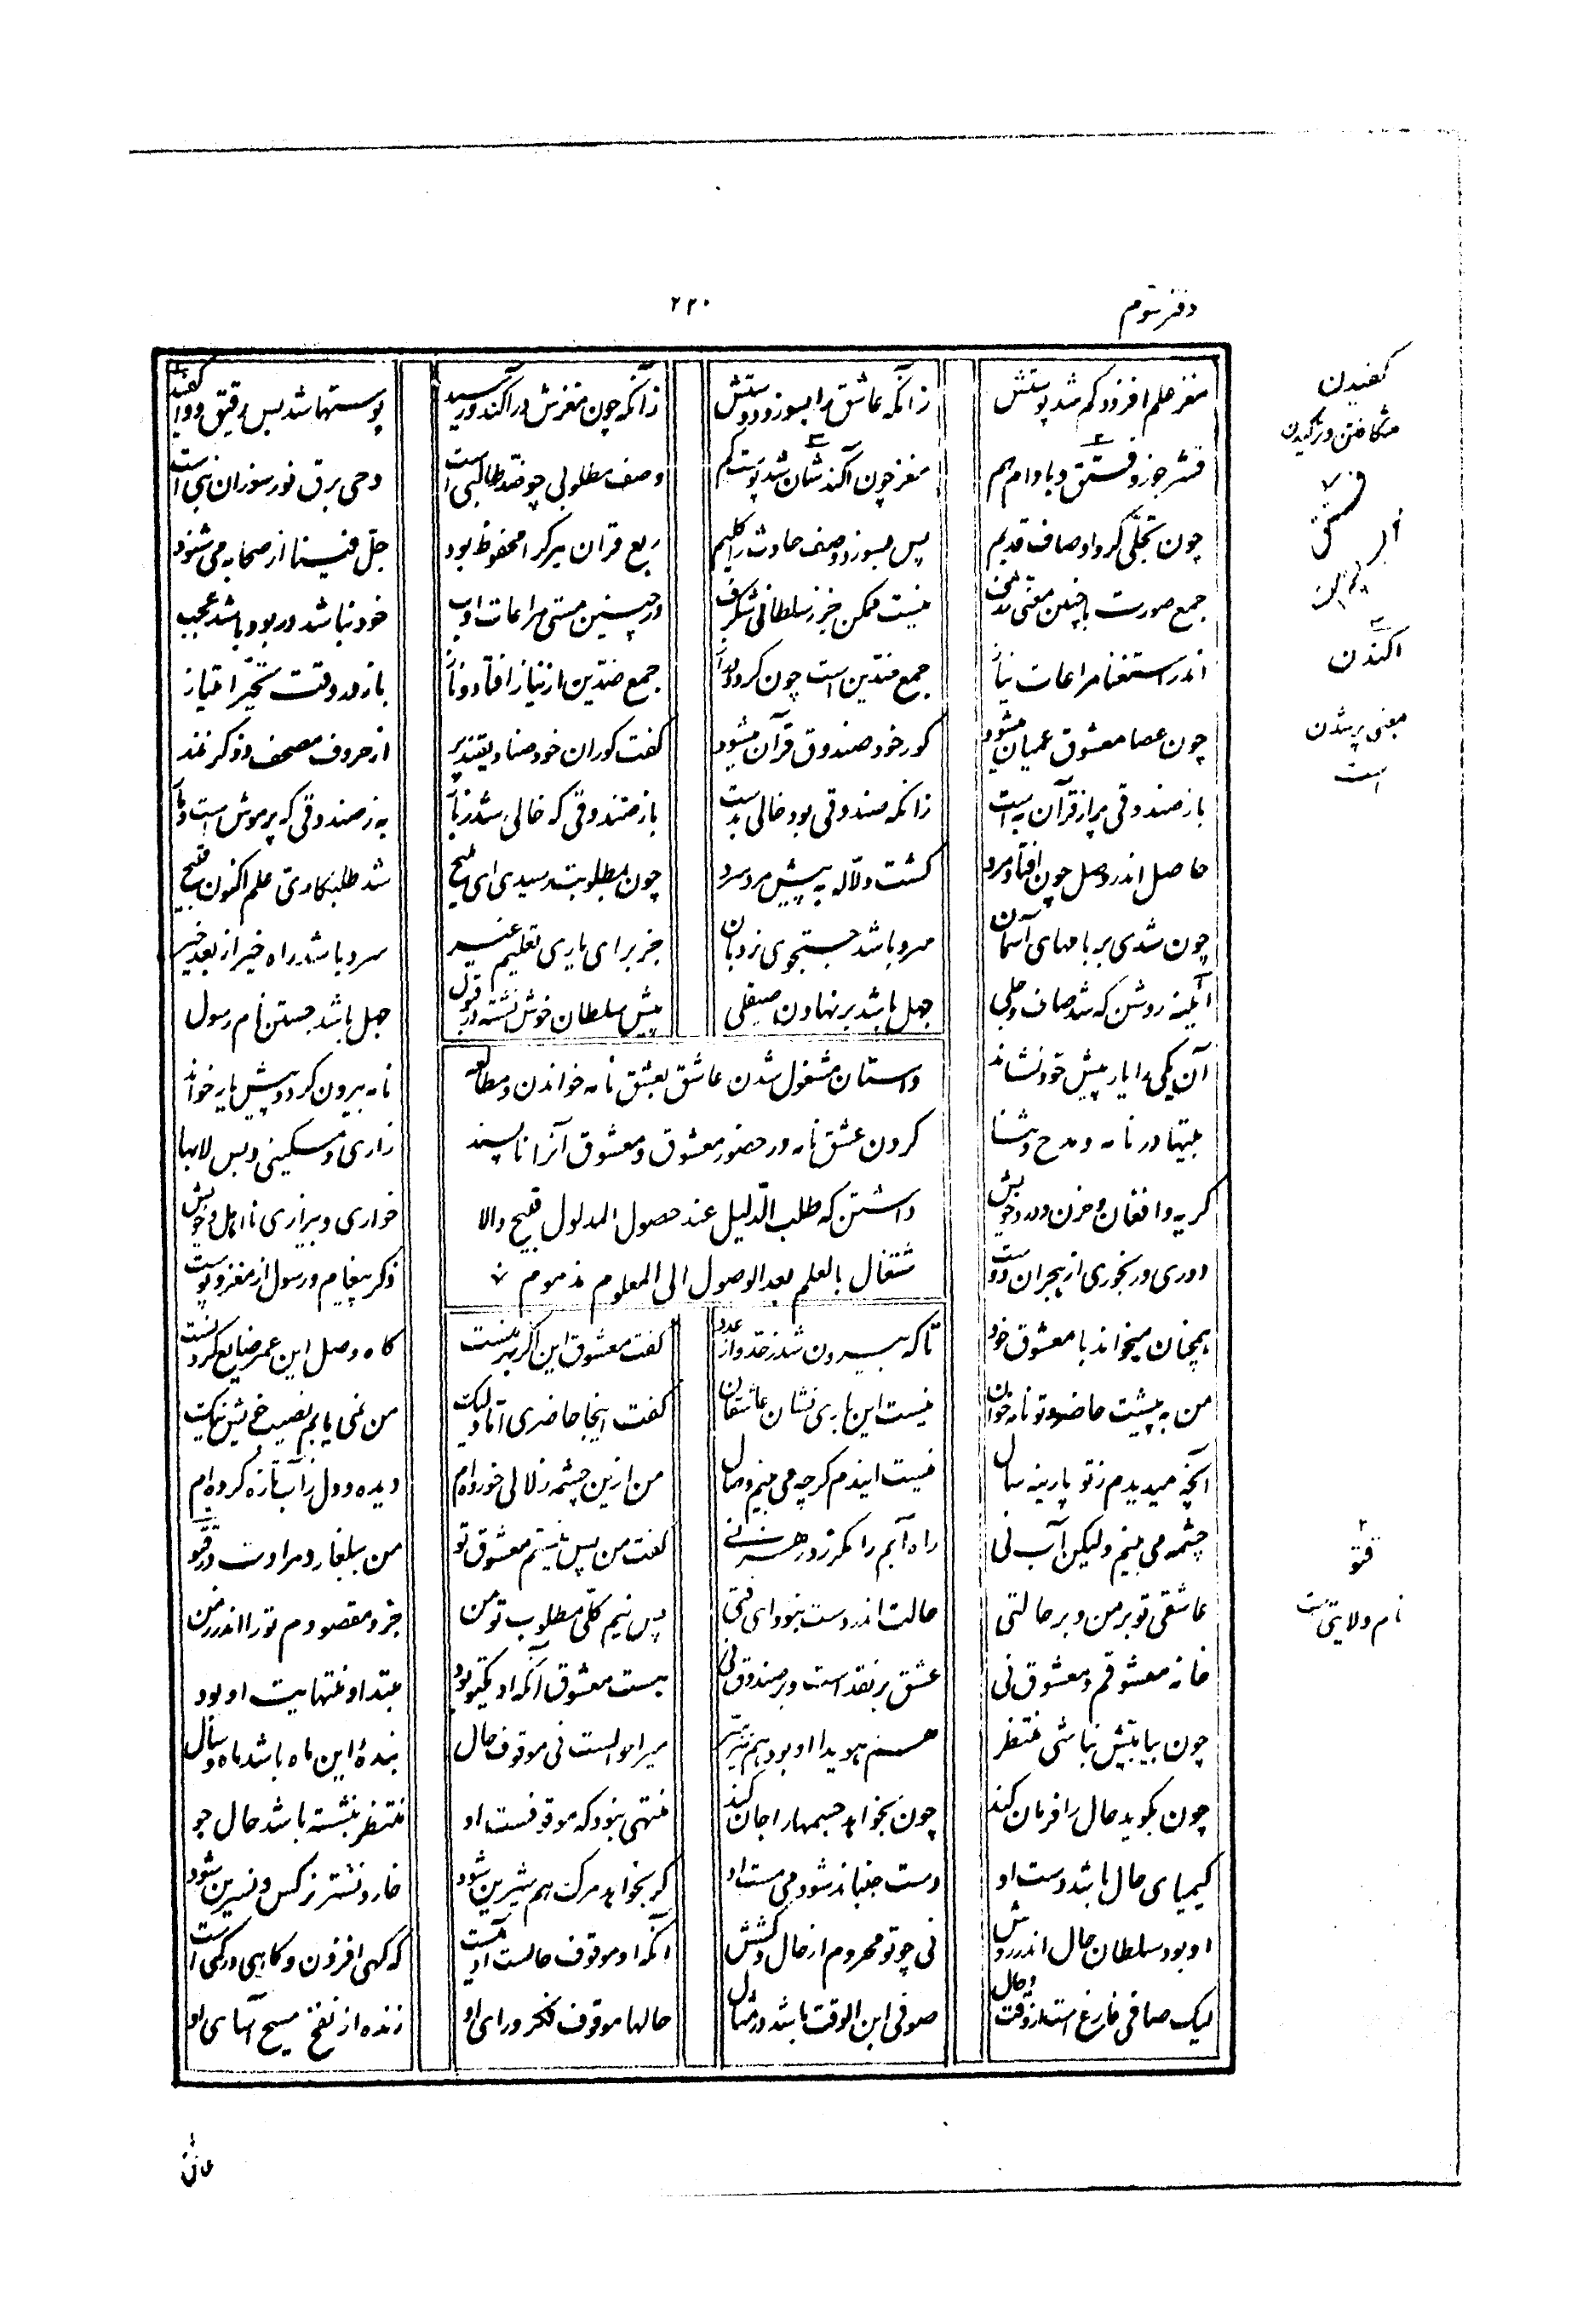 دفتر سوم
۲۲۰
مغز علم افزود کم شد پوستش زانکه عاشق را بسوزد دوستش زانکه چون مغزش در آکند و رسید پوستها شد بس رقیق و واکفید
قشر جوز و فستق و بادام هم مغز چون آکندشان شد پوست کم وصف مطلوبی چو ضد طالبی است وحی برق نور سوزان نبی است
چون تجلّی کرد اوصاف قدیم پس بسوزد وصف حادث را گلیم ربع قرآن هرکرا محفوظ بود جلّ فینا از صحابه می شنود
جمع صورت با چنین معنی ژرف نیست ممکن جز ز سلطانی شگرف در چنین مستی مراعات ادب خود نباشد ور بود باشد عجب
اندر استغنا مراعات نیاز جمع ضدّین است چون گرد و دراز جمع ضدّین از نیاز افتاد و ناز باز در وقت تحیّر امتیاز
چون عصا معشوق عمیان میشود کور خود صندوق قرآن میشود گفت کوران خود صنادیقند پر از حروف مصحف و ذکر و نذر
باز صندوقی پر از قرآن به است زانکه صندوقی بود خالی بدست باز صندوقی که خالی شد ز بار به ز صندوقی که پر موش است و مار
حاصل اندر وصل چون افتاد مرد گشت دلّاله به پیش مرد سرد چون بمطلوبت رسیدی ای ملیح شد طلبکاری علم اکنون قبیح
چون شدی بر بامهای آسمان سرد باشد جستجوی نردبان جز برای یاری تعلیم غیر سرد باشد راه خیر از بعد خیر
آینه روشن که شد صاف و جلی جهل باشد بر نهادن صیقلی پیش سلطان خوش نشسته در قبول جهل باشد جستن نام رسول
داستان مشغول شدن عاشق بعشق نامه خواندن و مطالعه
کردن عشق نامه در حضور معشوق و معشوق آنرا ناپسند
داشتن که طلب الدّلیل عند حصول المدلول قبیح والا
شتغال بالعلم بعد الوصول الی المعلوم مذموم
آن یکی را یار پیش خود نشاند نامه بیرون کرد و پیش یار خواند
بیتها در نامه و مدح و ثنا زاری و مسکینی و بس لابها
گریه و افغان و حزن و درد خویش خواری و بیزاری نا اهل و خویش
دوری و رنجوری از هجران دوست ذکر پیغام و رسول از مغز و پوست
همچنان میخواند با معشوق خود تا که بیرون شد ز حدّ و از عدد گفت معشوق این اگر بهر منست گاه وصل این عمر ضایع کردنست
من به پیشت حاضر و تو نامه خوان نیست این باری نشان عاشقان گفت اینجا حاضری امّا ولیک من نمی یابم نصیب خویش نیک
آنچه میدیدم ز تو پارینه سال نیست ایندم گرچه می بینم وصال من ازین چشمه زلالی خورده ام دیده و دل ز آب تازه کرده ام
چشمه می بینم ولیکن آب نی راه آبم را مگر زد رهزنی گفت من پس نیستم معشوق تو من ببلغار و مرادت در قتو
عاشقی تو بر من و بر حالتی حالت اندر دست نبود ای فتی پس نیم کلّی مطلوب تو من جزو مقصودم تو را اندر زمن
خانه معشوقم و معشوق نی عشق بر نقد است و بر صندوق نی هست معشوق آنکه او یکتو بود مبتدا و منتهایت او بود
چون بیابیش نباشی منتظر هم هویدا او بود هم نیز سرّ میر احوالست نی موقوف حال بندهٔ این ماه باشد ماه و سال
چون بگوید حال را فرمان کند چون بخواهد جسمها را جان کند منتهی نبود که موقوفست او منتظر بنشسته باشد حال جو
کیمیای حال باشد دست او دست جنباند شود می مست او گر بخواهد مرگ هم شیرین شود خار و نشتر نرگس و نسرین شود
او بود سلطان حال اندر روش نی چو تو محروم از حال و کشش آنکه او موقوف حالست آدمیست که گهی افزون و گاهی در کمی است
صوفی ابن الوقت باشد در مثال لیک صافی فارغ است از وقت و حال حالها موقوف فکر و رای او زنده از نفخ مسیح آسای او
کفیدن
شکافتن و ترکیدن
آکندن
بمعنی پر شدن
است
قتو
نام ولایتیست